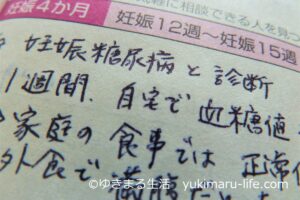 気軽に相談できる人を見つ
妊娠4か月
妊娠12週〜妊娠15週
妊娠糖尿病と診断
1週間、自宅で血糖値
家庭の食事では正常
外食で満腹だと
©ゆきまる生活 yukimaru-life.com